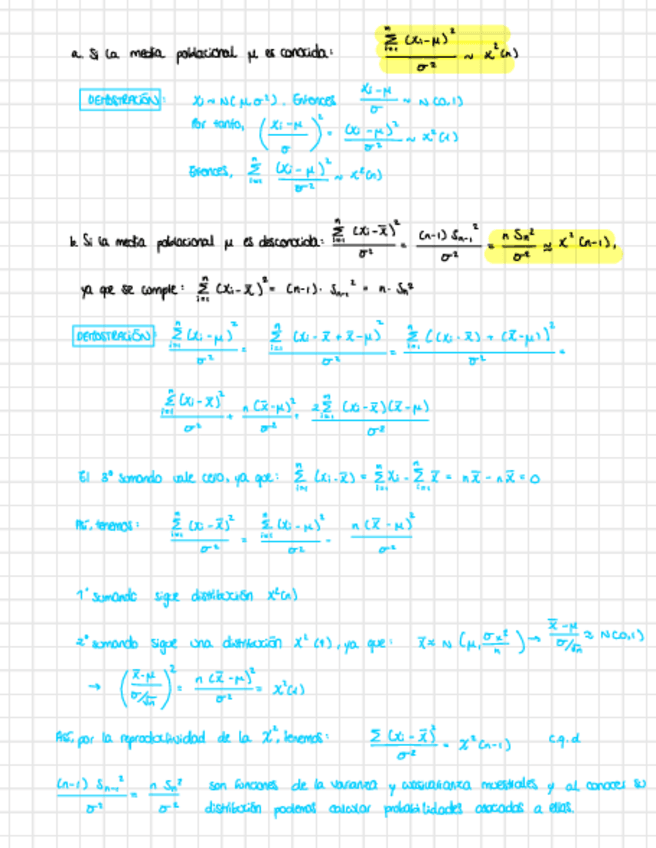 a. Si la media poblacional μ es conocida: $\frac{\sum_{i=1}^{n} (x_i-μ)^2}{σ^2} \sim x^2(n)$
DEMOSTRACIÓN: $x_i \sim N(μ, σ^2)$. Entonces $\frac{x_i-μ}{σ} \sim N(0,1)$
Por tanto, $\left(\frac{x_i-μ}{σ}\right)^2 = \frac{(x_i-μ)^2}{σ^2} \sim x^2(1)$
Entonces, $\sum_{i=1}^{n} \frac{(x_i-μ)^2}{σ^2} \sim x^2(n)$
b. Si la media poblacional μ es desconocida: $\frac{\sum_{i=1}^{n} (x_i-\bar{x})^2}{σ^2} = \frac{(n-1) S_{n-1}^2}{σ^2} = \frac{n S_n^2}{σ^2} ≈ x^2(n-1)$,
ya que se cumple: $\sum_{i=1}^{n} (x_i-\bar{x})^2 = (n-1) · S_{n-1}^2 = n · S_n^2$
DEMOSTRACIÓN: $\frac{\sum_{i=1}^{n} (x_i-μ)^2}{σ^2} = \frac{\sum_{i=1}^{n} (x_i-\bar{x}+\bar{x}-μ)^2}{σ^2} = \frac{\sum_{i=1}^{n} ((x_i-\bar{x})+(\bar{x}-μ))^2}{σ^2} =$
$\frac{\sum_{i=1}^{n} (x_i-\bar{x})^2}{σ^2} + \frac{n(\bar{x}-μ)^2}{σ^2} + \frac{2\sum_{i=1}^{n} (x_i-\bar{x})(\bar{x}-μ)}{σ^2}$
El 3º sumando vale cero, ya que: $\sum_{i=1}^{n} (x_i-\bar{x}) = \sum_{i=1}^{n} x_i - \sum_{i=1}^{n} \bar{x} = n\bar{x} - n\bar{x} = 0$
Así, tenemos: $\frac{\sum_{i=1}^{n} (x_i-\bar{x})^2}{σ^2} = \frac{\sum_{i=1}^{n} (x_i-μ)^2}{σ^2} - \frac{n(\bar{x}-μ)^2}{σ^2}$
1º sumando sigue distribución $x^2(n)$
2º sumando sigue una distribución $x^2(1)$, ya que: $\bar{x} ≈ N\left(μ, \frac{σ_x^2}{n}\right) → \frac{\bar{x}-μ}{σ/\sqrt{n}} ≈ N(0,1)$
→ $\left(\frac{\bar{x}-μ}{σ/\sqrt{n}}\right)^2 = \frac{n(\bar{x}-μ)^2}{σ^2} = x^2(1)$
Así, por la reproductividad de la $χ^2$, tenemos: $\frac{\sum (x_i-\bar{x})^2}{σ^2} = x^2(n-1)$ c.q.d
$\frac{(n-1) S_{n-1}^2}{σ^2} = \frac{n S_n^2}{σ^2}$ son funciones de la varianza y cuasivarianza muestrales y al conocer su
distribución podemos calcular probabilidades asociadas a ellas.